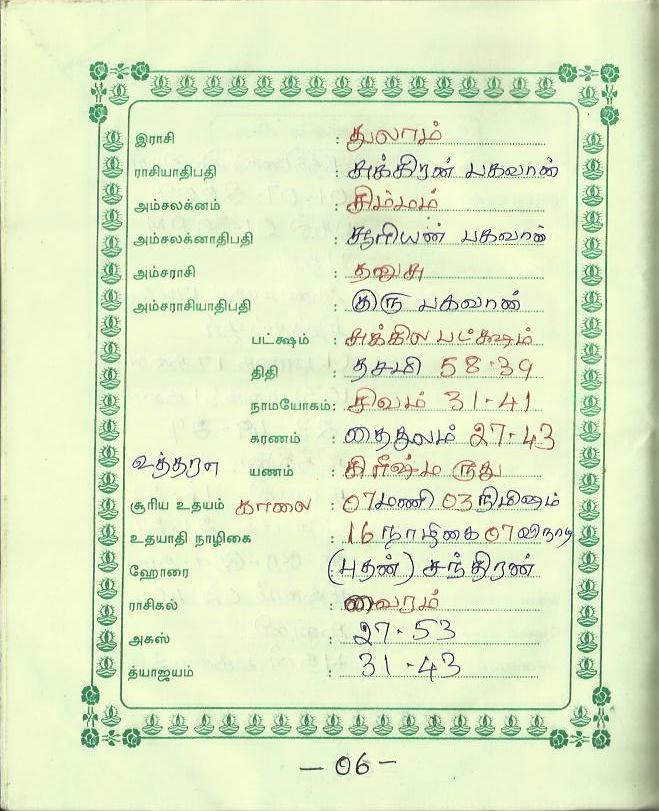 இராசி : துலாம்
ராசியாதிபதி : சுக்கிரன் பகவான்
அம்சலக்னம் : சிம்மம்
அம்சலக்னாதிபதி : சூரியன் பகவான்
அம்சராசி : தனுசு
அம்சராசியாதிபதி : குரு பகவான்
பட்க்ஷம் : சுக்கில பட்க்ஷம்
திதி : தசமி 58-39
நாமயோகம் : சிவம் 31-41
கரணம் : தைதுலம் 27-43
உத்தரா யணம் : கிரீஷ்ம ருது
சூரிய உதயம் காலை : 07மணி 03நிமிஷம்
உதயாதி நாழிகை : 16 நாழிகை 07 விநாடி
ஹோரை : (புதன்) சந்திரன்
ராசிகல் : வைரம்
அகஸ் : 27-53
த்யாஜயம் : 31-43
- 06 -